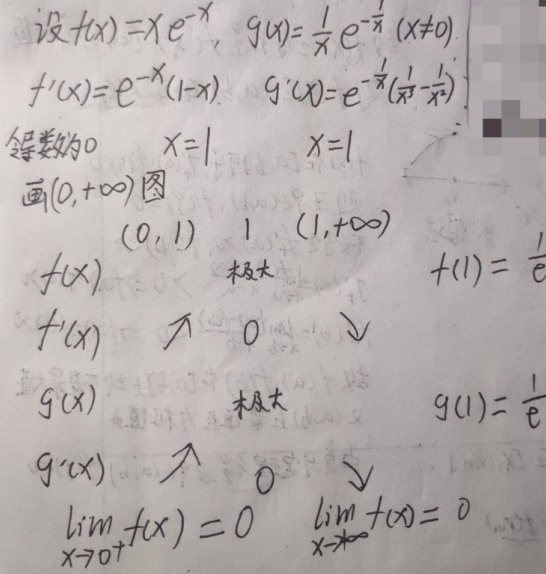 设f(x)=xe^{-x}, g(x)=\frac{1}{x}e^{-\frac{1}{x}} (x≠0).
f'(x)=e^{-x}(1-x) g'(x)=e^{-\frac{1}{x}}(\frac{1}{x^3}-\frac{1}{x^2})
令导数为0 x=1 x=1
画(0,+∞)图
(0,1) 1 (1,+∞)
f(x) 极大 f(1)=\frac{1}{e}
f'(x) ↗ 0 ↘
g(x) 极大 g(1)=\frac{1}{e}
g'(x) ↗ 0 ↘
\lim_{x→0^+} f(x)=0 \lim_{x→+∞} f(x)=0